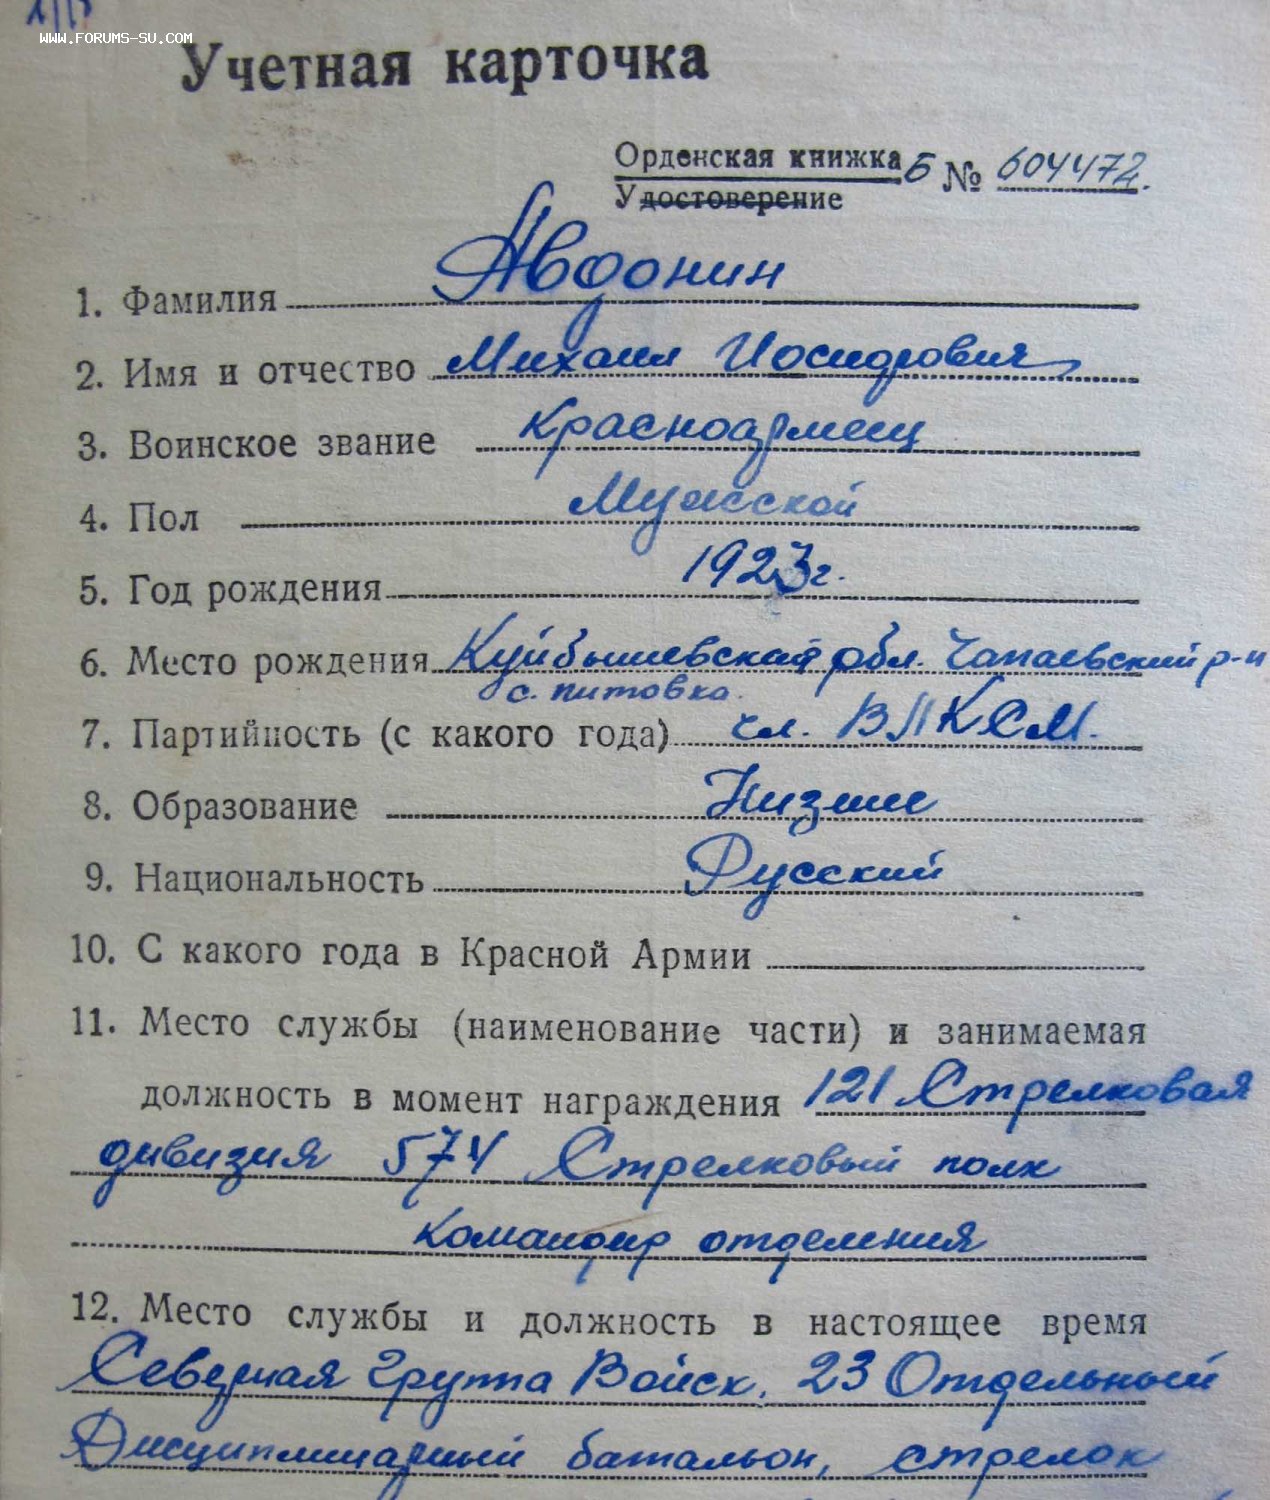 WWW.FORUMS-SU.COM
Учетная карточка
Орденская книжка Б № 604472.
Удостоверение
1. Фамилия Авдонин
2. Имя и отчество Михаил Иосифович
3. Воинское звание Красноармеец
4. Пол Мужской
5. Год рождения 1923г.
6. Место рождения Куйбышевская обл. Чапаевский р-н
с. Титовка.
7. Партийность (с какого года) чл. ВЛКСМ.
8. Образование Низшее
9. Национальность Русский
10. С какого года в Красной Армии
11. Место службы (наименование части) и занимаемая
должность в момент награждения 121 Стрелковая
дивизия 574 Стрелковый полк
командир отделения
12. Место службы и должность в настоящее время
Северная Группа Войск, 23 Отдельный
Дисциплинарный батальон, стрелок